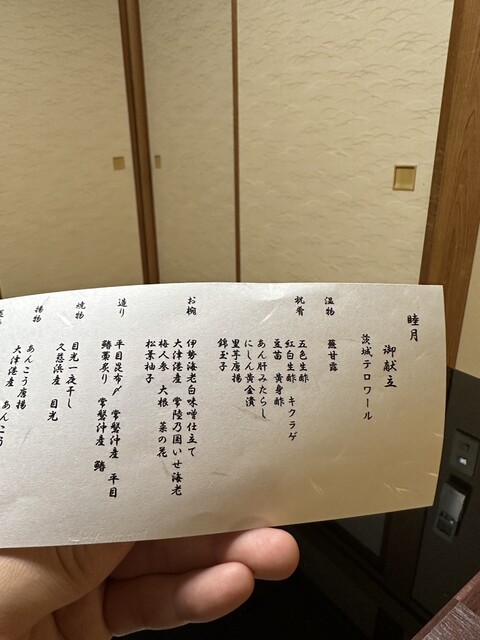 睦月
御献立
茨城テロワール
温物
蘇甘露
祝肴
五色生酢
紅白生酢 キクラゲ
豆苗 黄身酢
あん肝みたらし
にしん黄金漬
里芋唐揚
錦玉子
お椀
伊勢海老白味噌仕立て
大津港産 常陸乃国いせ海老
梅人参 大根 菜の花
松葉柚子
造り
平目昆布〆 常磐沖産 平目
鰆藁炙り 常磐沖産 鰆
焼物
目光一夜干し
久慈浜産 目光
揚物
あんこう唐揚
大津港産 あんこう